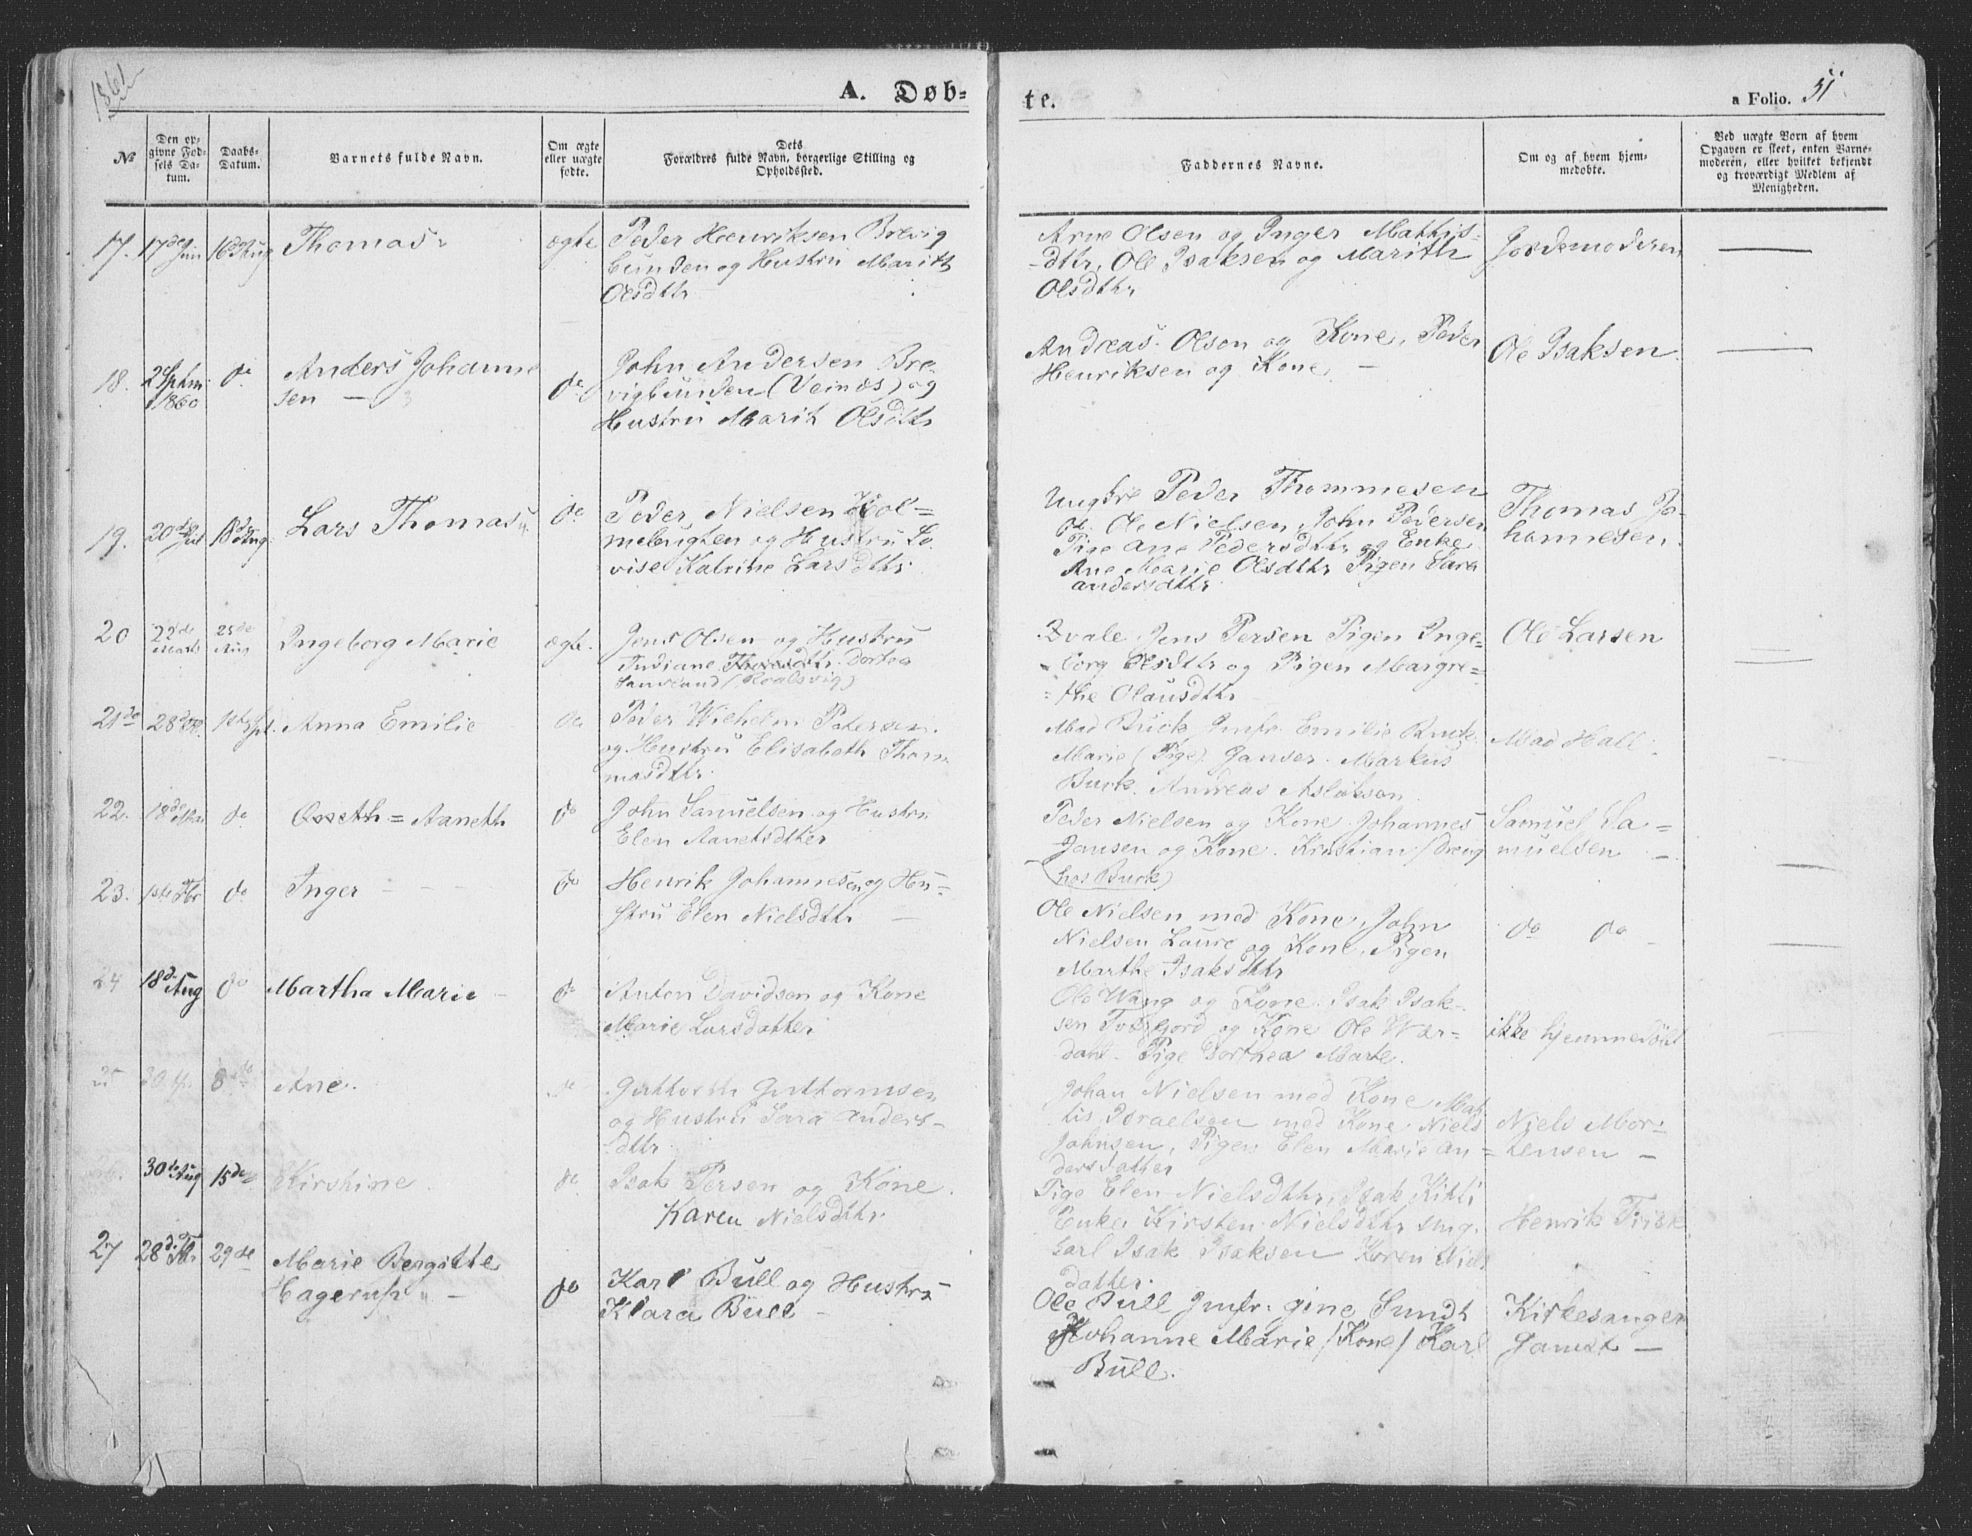 1861
A. Døb-
te.
a Folio. 51
№
Den op-
givne Fød-
sels Da-
tum.
Daabs-
Datum.
Barnets fulde Navn.
Om ægte
eller uægte
fødte.
Dets
Forældres fulde Navn, borgerlige Stilling og
Opholdssted.
Faddernes Navne.
Om og af hvem hjem-
medøbte.
Ved uægte Børn af hvem
Opgaven er skeet, enten Barne-
moderen, eller hvilket bekjendt
og troværdigt Medlem af
Menigheden.
17. 17de Juni 16de Aug Thomas ægte
Peder Henriksen Brevig
bunden og Hustru Marith
Olsdttr
Arne Olsen og Inger Mathis-
-dttr, Ole Isaksen og Marith
Olsdttr
Jordemoderen
18. 2 Sptmr 1860 do
Anders Johanne
sen — do
John Andersen Bre-
vigbunden (Veines) og
Hustru Marit Olsdttr
Andreas Olsen og Kone, Peder
Henriksen og Kone —
Ole Isaksen
19. 20de Jul 18de Aug. Lars Thomas do
Peder Nielsen Hol-
mebugten og Hustru Lo-
vise Katrine Larsdttr
Ungkre Peder Thommesen
Ole Nielsen, John Pedersen
Pige Ane Pedersdttr og Enke
Ane Marie Olsdttr Pigen Sara
andersdttr
Thomas Jo-
hannesen
20 22de Marts 25de Aug Ingeborg Marie ægte.
Jens Olsen og Hustru
Indiane Thoresdttr Dortea
Sanvand (Roalsvig)
Qvale Jens Persen Pigen Inge-
borg Olsdttr og Pigen Margre-
the Olausdttr
Ole Larsen
21de 28de 1ste Spt. Anna Emilie do
Peder Wilhelm Petersen
og Hustru Elisabeth Thom
masdttr
Mad Buck Jmfr Emilie Buck
Marie (Pige) Janser Markus
Buck. Andreas Aslaksen
Mad Hall
22. 18de Mai do Osseth = Aaneth do
John Samuelsen og Hustru
Elen Aanetsdtter
Peder Nielsen og Kone Johannes
Jansen og Kone. Kristian (Dreng
hos Buck)
Samuel Sa=
muelsen —
23. 1ste Fbr do Inger do
Henrik Johannesen og Hu-
stru Elen Nielsdttr
Ole Nielsen med Kone, John
Nielsen Laure og Kone, Pigen
Marthe Isaksdttr
do do
24 18de Aug do Martha Marie do
Anton Davidsen og Kone
Marie Larsdatter
Ole Wang og Kone Isak Isak-
sen Torsfjord og Kone Ole War-
dahl Pige Dorthea Marte.
ikke hjemmedøbt
25 8de Ane do
Guttorm Guttormsen
og Hustru Sara Anders-
dttr
Johan Nielsen med Kone Mat
tis Israelsen med Kone Niels
Johnsen, Pigen Elen Marie An=
dersdatter
Niels Mor-
tensen —
26. 30de Aug 15de Kirstine do
Isak Persen og Kone
Karen Nielsdttr
Pige Elen Nielsdttr, Isak Kitti
Enke Kirsten Nielsdttr ung
karl Isak Isaksen Karen Niels
datter
Henrik Frisk
27 28de Fbr 29de
Marie Bergitte
Hagerup — do
Karl Bull og Hustru
Klara Bull
Ole Bull Jmfr. gine Sundt
Johanne Marie /Kone/ Karl
Bull.
Kirkesanger
Jamst —